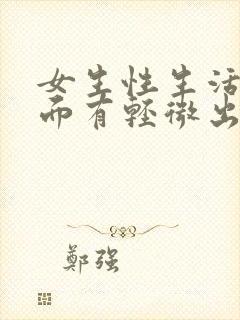 女生性生活
而有轻微出
鄭强